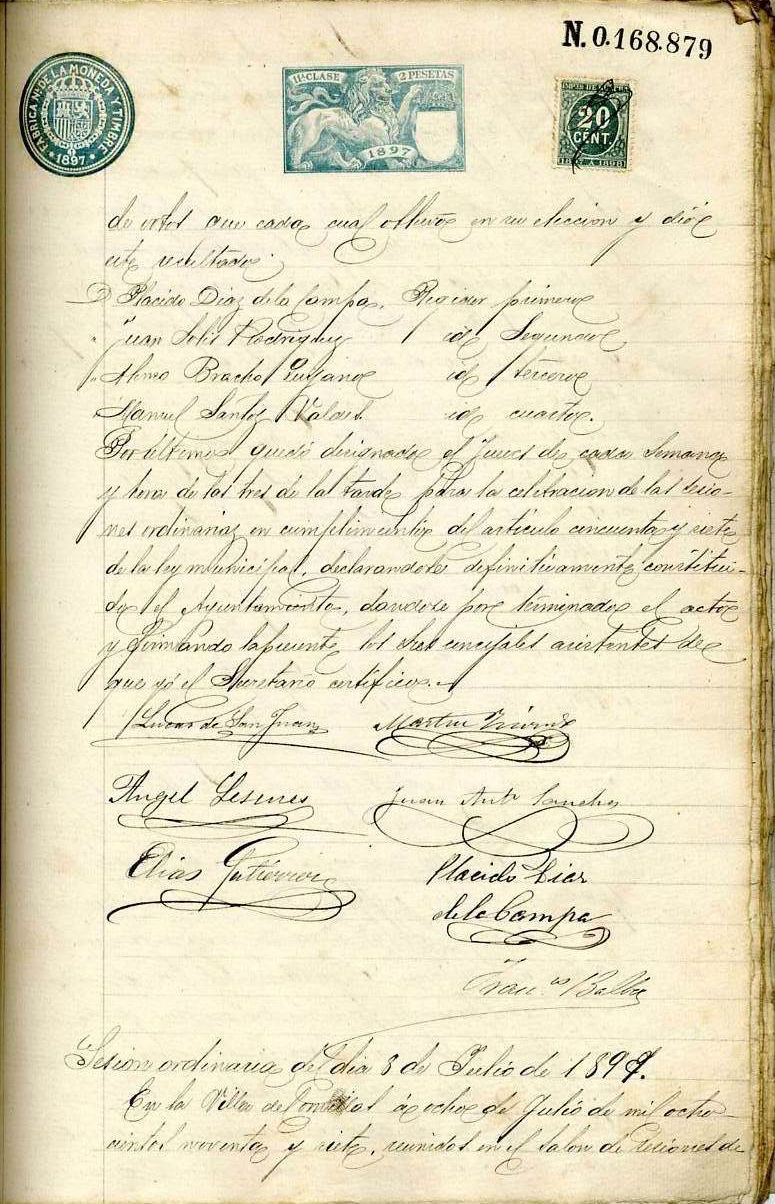 N. 0.168.879
FABRICA N. DE LA MONEDA Y TIMBRE
* 1897 *
11ª CLASE 2 PESETAS
1897
20
CENT.
1897 A 1898
de votos que cada cual obtuvo en su eleccion y dió
este resultado:
D Placido Diaz de la Campa. Regidor primero
" Juan Solis Rodriguez id Segundo
" Bracho id tercero
" Manuel Santos Valdes id cuarto.
Por último quedó designado el Jueves de cada Semana
y hora de las tres de la tarde para la celebracion de las sesio-
nes ordinarias en cumplimiento del articulo cincuenta y siete
de la ley municipal, declarandose definitivamente constitui-
do el Ayuntamiento, dandose por terminado el acto
y firmando la presente los Sres concejales asistentes de
que yó el Secretario certifico.
Lucas de San Juan Martin
Angel Juan Antº Sanchez
Elias Gutierrez Placido Diaz
de la Campa
Franco Balbin
Sesion ordinaria del dia 8 de Julio de 1897.
En la Villa de á ocho de Julio de mil ocho-
cientos noventa y siete, reunidos en el Salon de sesiones de